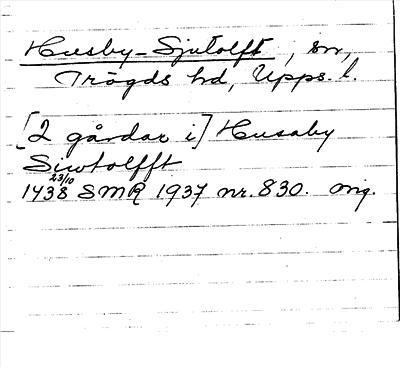 Husby-Sjutolft, sn,
Trögds hd, Upps. l.
[2 gårdar i] Husaby
Siwtolfft
23/10
1438 SMR 1937 nr. 830. orig.